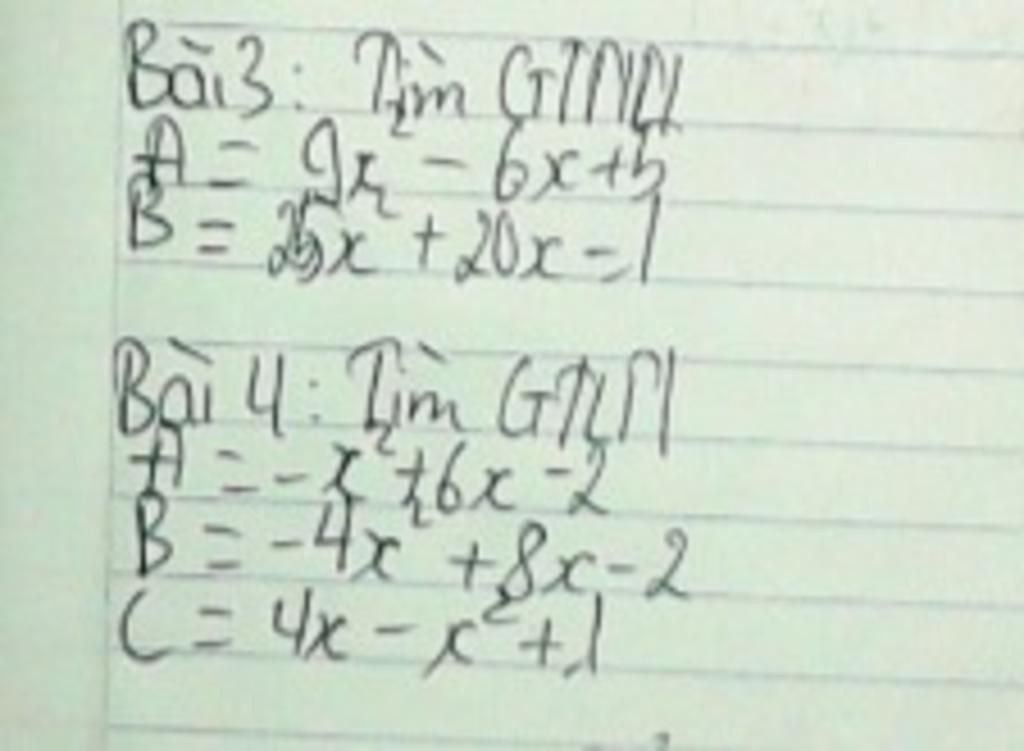 Bài 3: Tìm GTNN
A = 9x² - 6x + 5
B = 25x² + 20x - 1
Bài 4: Tìm GTLN
A = -x² + 6x - 2
B = -4x² + 8x - 2
C = 4x - x² + 1